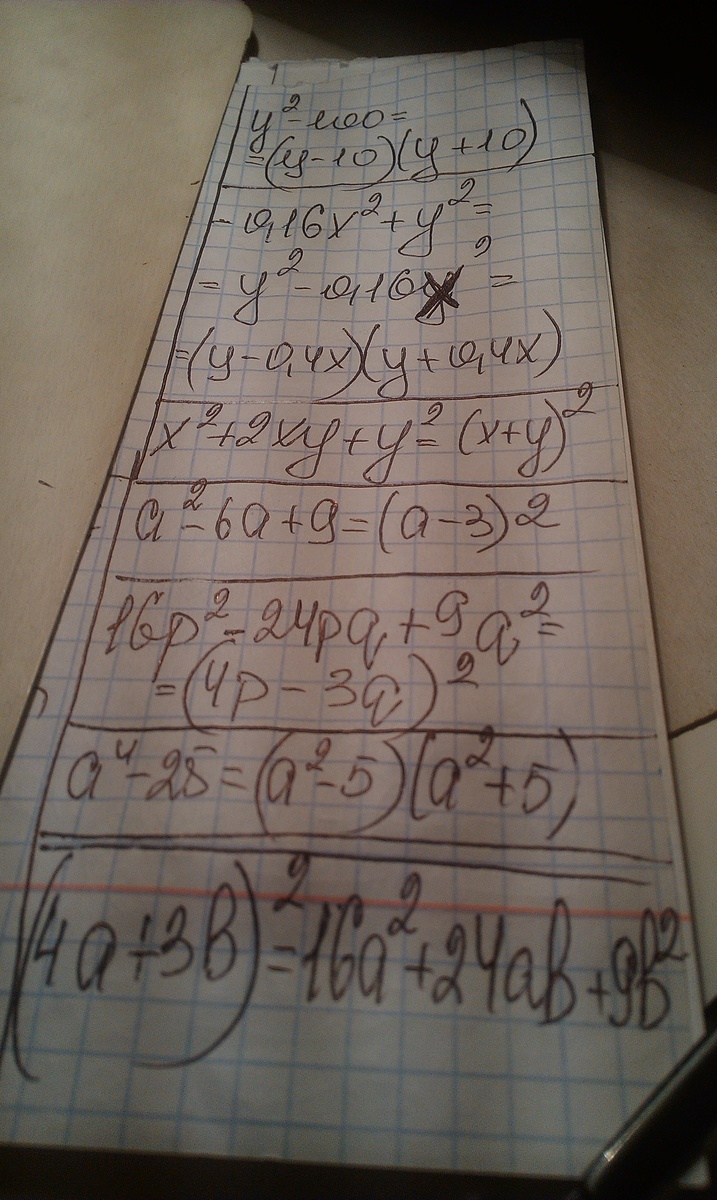 y²-100=
=(y-10)(y+10)
-0,16x²+y²=
=y²-0,16x²=
=(y-0,4x)(y+0,4x)
x²+2xy+y²=(x+y)²
a²-6a+9=(a-3)2
16p²-24pq+9q²=
=(4p-3q)²
a⁴-25=(a²-5)(a²+5)
(4a+3b)²=16a²+24ab+9b²